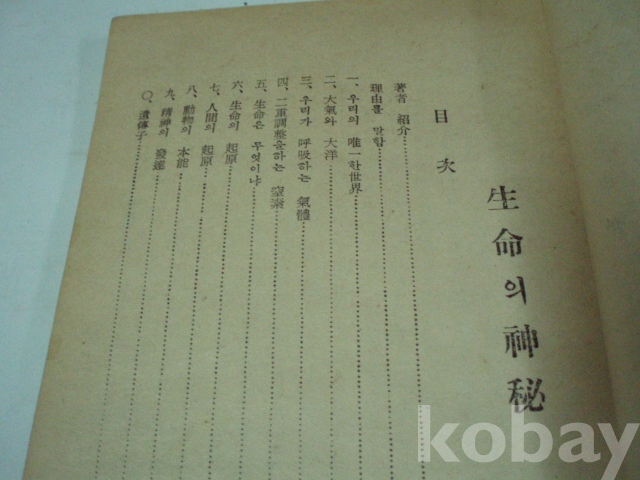 生命의 神秘
目次
著者 紹介
理由를 말함
一、우리의 唯一한 世界
二、大氣와 大洋
三、우리가 呼吸하는 氣體
四、二重調整을하는 窒素
五、生命은 무엇이냐
六、生命의 起原
七、人間의 起原
八、動物의 本能
九、精神의 發達
〇、遺傳子
kobay